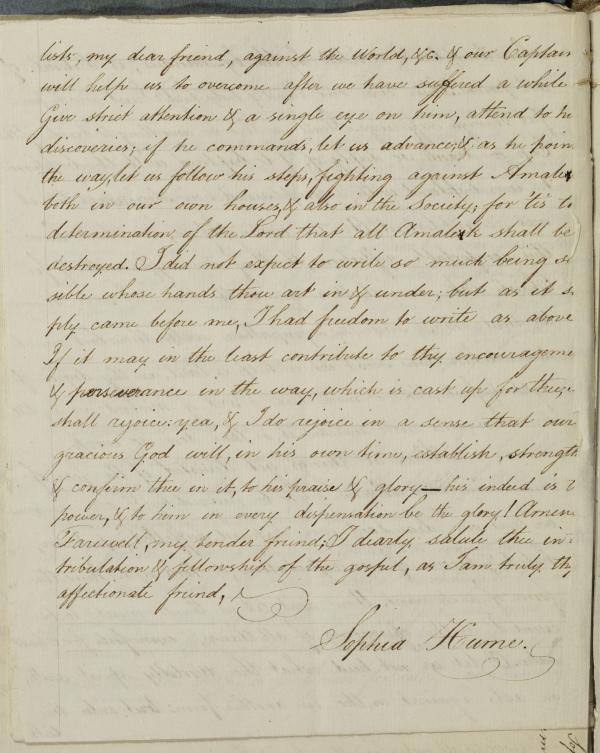 lists, my dear friend, against the World, &c. & our Captain
will help us to overcome after we have suffered a while
Give strict attention & a single eye on him, attend to h
discoveries; if he commands, let us advance; & as he poin
the way, let us follow his steps, fighting against Amalek
both in our own houses, & also in the Society; for 'tis t
determination of the Lord that all Amalek shall be
destroyed. I did not expect to write so much being s
sible whose hands thou art in & under; but as it s
ply came before me, I had freedom to write as above
If it may in the least contribute to thy encourageme
& perseverance in the way, which is cast up for thee,
shall rejoice: yea, & I do rejoice in a sense that our
gracious God will, in his own time, establish, strength
& confirm thee in it, to his praise & glory — his indeed is
power, & to him in every dispensation be the glory! Amen
Farewell, my tender friend; I dearly salute thee in
tribulation & fellowship of the gospel, as I am truly thy
affectionate friend,
Sophia Hume.